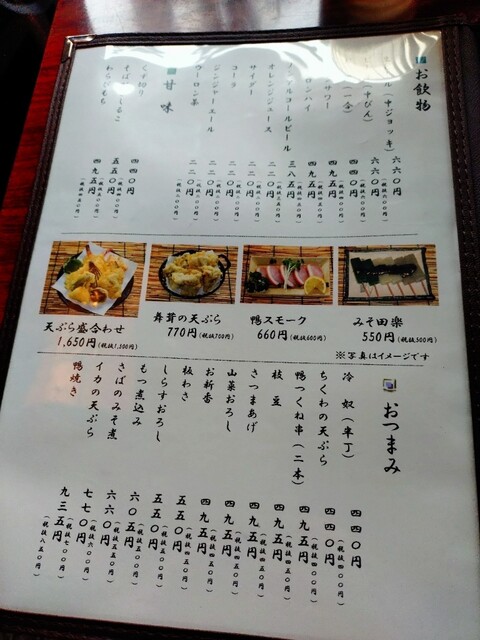 お飲物
ール（中ジョッキ） 六六〇円（税抜六〇〇円）
（中びん） 六六〇円（税抜六〇〇円）
（一合） 四四〇円（税抜四〇〇円）
サワー 四九五円（税抜四五〇円）
ロンハイ 四九五円（税抜四五〇円）
ノンアルコールビール 三八五円（税抜三五〇円）
オレンジジュース 二二〇円（税抜二〇〇円）
サイダー 二二〇円（税抜二〇〇円）
コーラ 二二〇円（税抜二〇〇円）
ジンジャーエール 二二〇円（税抜二〇〇円）
ウーロン茶 二二〇円（税抜二〇〇円）
甘味
くず切り 四四〇円（税抜四〇〇円）
しるこ 五五〇円（税抜五〇〇円）
わらびもち 四九五円（税抜四五〇円）
天ぷら盛合わせ
1,650円（税抜1,500円）
舞茸の天ぷら
770円（税抜700円）
鴨スモーク
660円（税抜600円）
みそ田楽
550円（税抜500円）
※写真はイメージです
おつまみ
冷奴（半丁） 四四〇円（税抜四〇〇円）
ちくわの天ぷら 四四〇円（税抜四〇〇円）
鴨つくね串（二本） 四九五円（税抜四五〇円）
枝豆 四九五円（税抜四五〇円）
さつまあげ 四九五円（税抜四五〇円）
山菜おろし 四九五円（税抜四五〇円）
お新香 四九五円（税抜四五〇円）
板わさ 五五〇円（税抜五〇〇円）
しらすおろし 五五〇円（税抜五〇〇円）
もつ煮込み 六〇五円（税抜五五〇円）
さばのみそ煮 六六〇円（税抜六〇〇円）
イカの天ぷら 七七〇円（税抜七〇〇円）
鴨焼き 九三五円（税抜八五〇円）